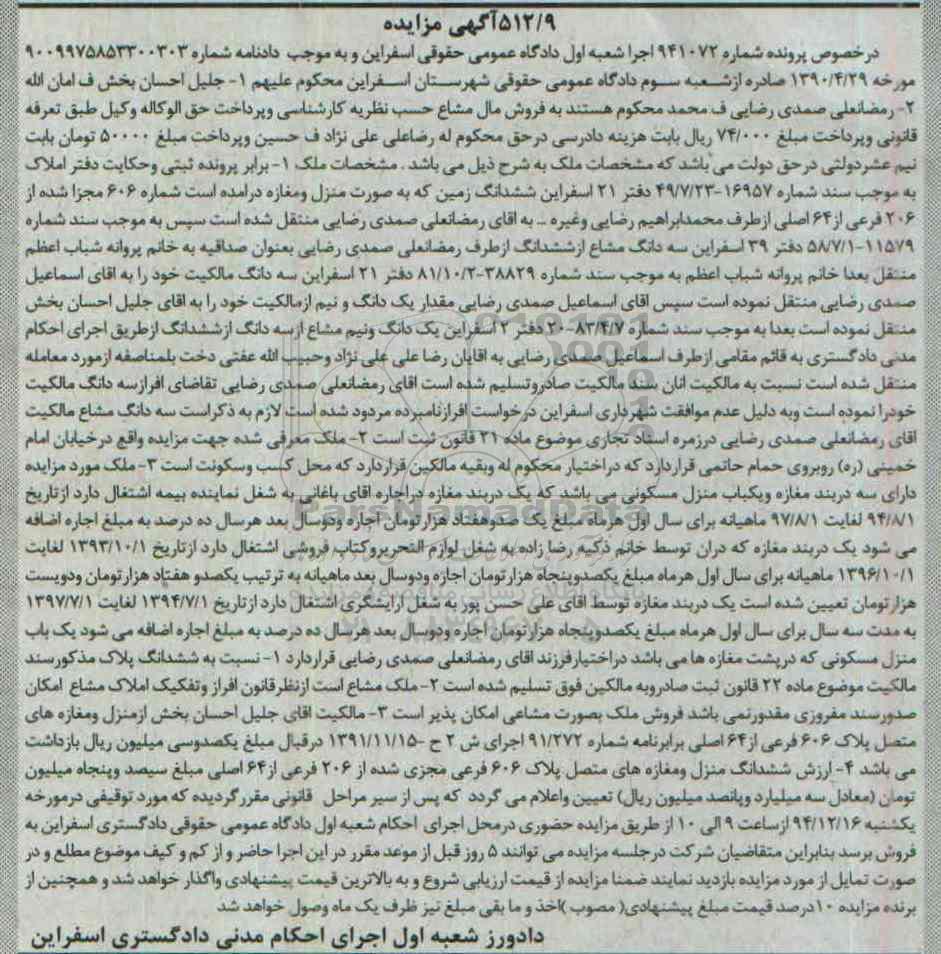 ۵۱۲/۹آگهی مزایده
درخصوص پرونده شماره ۹۴۱۰۷۲ اجرا شعبه اول دادگاه عمومی حقوقی اسفراین و به موجب دادنامه شماره ۹۰۰۹۹۷۵۸۵۳۳۰۰۳۰۳
مورخه ۱۳۹۰/۴/۲۹ صادره ازشعبه سوم دادگاه عمومی حقوقی شهرستان اسفراین محکوم علیهم ۱- جلیل احسان بخش ف امان الله
۲- رمضانعلی صمدی رضایی ف محمد محکوم هستند به فروش مال مشاع حسب نظریه کارشناسی وپرداخت حق الوکاله وکیل طبق تعرفه
قانونی وپرداخت مبلغ ۷۴/۰۰۰ ریال بابت هزینه دادرسی درحق محکوم له رضاعلی علی نژاد ف حسین وپرداخت مبلغ ۵۰۰۰۰ تومان بابت
نیم عشردولتی درحق دولت می باشد که مشخصات ملک به شرح ذیل می باشد . مشخصات ملک ۱- برابر پرونده ثبتی وحکایت دفتر املاک
به موجب سند شماره ۱۶۹۵۷-۴۹/۷/۲۳ دفتر ۲۱ اسفراین ششدانگ زمین که به صورت منزل ومغازه درامده است شماره ۶۰۶ مجزا شده از
۲۰۶ فرعی از۶۴ اصلی ازطرف محمدابراهیم رضایی وغیره .. به اقای رمضانعلی صمدی رضایی منتقل شده است سپس به موجب سند شماره
۱۱۵۷۹-۵۸/۷/۱ دفتر ۳۹ اسفراین سه دانگ مشاع ازششدانگ ازطرف رمضانعلی صمدی رضایی بعنوان صداقیه به خانم پروانه شباب اعظم
منتقل بعدا خانم پروانه شباب اعظم به موجب سند شماره ۳۸۸۲۹-۸۱/۱۰/۲ دفتر ۲۱ اسفراین سه دانگ مالکیت خود را به اقای اسماعیل
صمدی رضایی منتقل نموده است سپس اقای اسماعیل صمدی رضایی مقدار یک دانگ و نیم ازمالکیت خود را به اقای جلیل احسان بخش
منتقل نموده است بعدا به موجب سند شماره ۸۳/۴/۷-۲۰ دفتر ۲ اسفراین یک دانگ ونیم مشاع ازسه دانگ ازششدانگ ازطریق اجرای احکام
مدنی دادگستری به قائم مقامی ازطرف اسماعیل صمدی رضایی به اقایان رضا علی علی نژاد وحبیب الله عفتی دخت بلمناصفه ازمورد معامله
منتقل شده است نسبت به مالکیت انان سند مالکیت صادروتسلیم شده است اقای رمضانعلی صمدی رضایی تقاضای افرازسه دانگ مالکیت
خودرا نموده است وبه دلیل عدم موافقت شهرداری اسفراین درخواست افرازنامبرده مردود شده است لازم به ذکراست سه دانگ مشاع مالکیت
اقای رمضانعلی صمدی رضایی درزمره اسناد تجاری موضوع ماده ۲۱ قانون ثبت است ۲- ملک معرفی شده جهت مزایده واقع درخیابان امام
خمینی (ره) روبروی حمام حاتمی قراردارد که دراختیار محکوم له وبقیه مالکین قراردارد که محل کسب وسکونت است ۳- ملک مورد مزایده
دارای سه دربند مغازه ویکباب منزل مسکونی می باشد که یک دربند مغازه دراجاره اقای باغانی به شغل نماینده بیمه اشتغال دارد ازتاریخ
۹۴/۸/۱ لغایت ۹۷/۸/۱ ماهیانه برای سال اول هرماه مبلغ یک صدوهفتاد هزارتومان اجاره ودوسال بعد هرسال ده درصد به مبلغ اجاره اضافه
می شود یک دربند مغازه که دران توسط خانم ذکیه رضا زاده به شغل لوازم التحریروکتاب فروشی اشتغال دارد ازتاریخ ۱۳۹۳/۱۰/۱ لغایت
۱۳۹۶/۱۰/۱ ماهیانه برای سال اول هرماه مبلغ یکصدوپنجاه هزارتومان اجازه ودوسال بعد ماهیانه به ترتیب یکصدو هفتاد هزارتومان ودویست
هزارتومان تعیین شده است یک دربند مغازه توسط اقای علی حسن پور به شغل ارایشگری اشتغال دارد ازتاریخ ۱۳۹۴/۷/۱ لغایت ۱۳۹۷/۷/۱
به مدت سه سال برای سال اول هرماه مبلغ یکصدوپنجاه هزارتومان اجاره ودوسال بعد هرسال ده درصد به مبلغ اجاره اضافه می شود یک باب
منزل مسکونی که درپشت مغازه ها می باشد دراختیارفرزند اقای رمضانعلی صمدی رضایی قراردارد ۱- نسبت به ششدانگ پلاک مذکورسند
مالکیت موضوع ماده ۲۲ قانون ثبت صادروبه مالکین فوق تسلیم شده است ۲- ملک مشاع است ازنظرقانون افراز وتفکیک املاک مشاع امکان
صدورسند مفروزی مقدورنمی باشد فروش ملک بصورت مشاعی امکان پذیر است ۳- مالکیت اقای جلیل احسان بخش ازمنزل ومغازه های
متصل پلاک ۶۰۶ فرعی از۶۴ اصلی برابرنامه شماره ۹۱/۲۷۲ اجرای ش ۲ ح -۱۳۹۱/۱۱/۱۵ درقبال مبلغ یکصدوسی میلیون ریال بازداشت
می باشد ۴- ارزش ششدانگ منزل ومغازه های متصل پلاک ۶۰۶ فرعی مجزی شده از ۲۰۶ فرعی از۶۴ اصلی مبلغ سیصد وپنجاه میلیون
تومان (معادل سه میلیارد وپانصد میلیون ریال) تعیین واعلام می گردد که پس از سیر مراحل قانونی مقررگردیده که مورد توقیفی درمورخه
یکشنبه ۹۴/۱۲/۱۶ ازساعت ۹ الی ۱۰ از طریق مزایده حضوری درمحل اجرای احکام شعبه اول دادگاه عمومی حقوقی دادگستری اسفراین به
فروش برسد بنابراین متقاضیان شرکت درجلسه مزایده می توانند ۵ روز قبل از موعد مقرر در این اجرا حاضر و از کم و کیف موضوع مطلع و در
صورت تمایل از مورد مزایده بازدید نمایند ضمنا مزایده از قیمت ارزیابی شروع و به بالاترین قیمت پیشنهادی واگذار خواهد شد و همچنین از
برنده مزایده ۱۰درصد قیمت مبلغ پیشنهادی( مصوب )اخذ و ما بقی مبلغ نیز ظرف یک ماه وصول خواهد شد
دادورز شعبه اول اجرای احکام مدنی دادگستری اسفراین
ParsNamadData